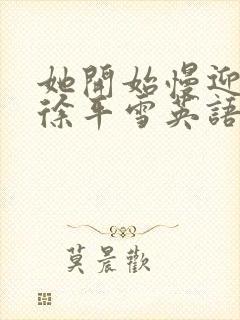 她開始慢迎
徐平雪英語
莫晨歡